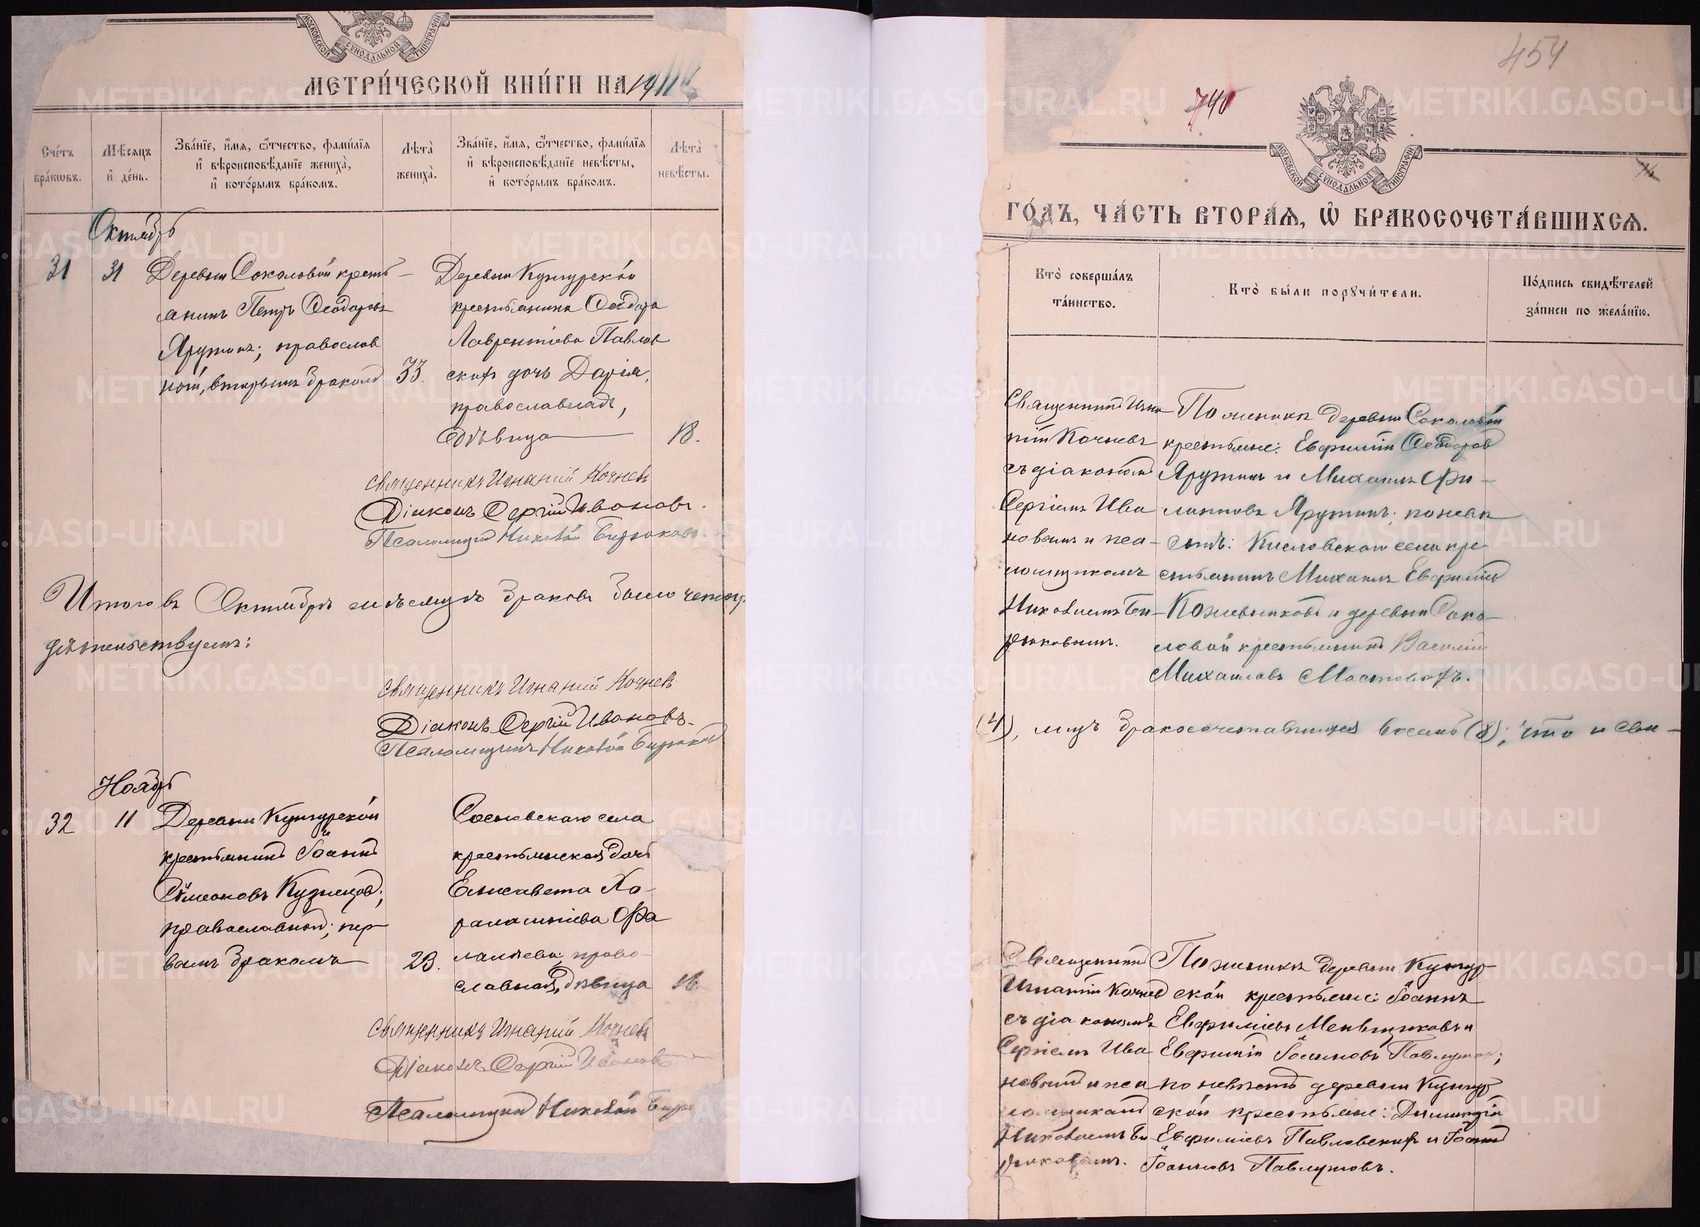 МЕТРИЧЕСКОЙ КНИГИ НА 191
Счетъ браковъ.
Мѣсяцъ и день.
Званіе, имя, отчество, фамилія и вѣроисповѣданіе жениха, и которымъ бракомъ.
Лѣта жениха.
Званіе, имя, отчество, фамилія и вѣроисповѣданіе невѣсты, и которымъ бракомъ.
Лѣта невѣсты.
Октябрь
31
31
Деревни Соколовой кресть-
янинъ Петръ Ѳеодоровъ
Яружинъ; православ
ной, вторымъ бракомъ
33.
Деревни Кунгурской
крестьянина Ѳеодора
Лаврентіева Павлов
скаго дочь Дарія,
православная,
дѣвица
18.
Священникъ Игнатій Кочневъ
Діаконъ Сергій Ивановъ.
Псаломщикъ Николай Бирюковъ.
Итого въ Октябрѣ мѣсяцѣ браковъ было четыр
дѣтельствуемъ:
Священникъ Игнатій Кочневъ
Діаконъ Сергій Ивановъ.
Псаломщикъ Николай Бирюковъ
Ноябрь
32
11
Деревни Кунгурской
крестьянинъ Іоаннъ
Симеоновъ Кузнецовъ;
православной; пер
вымъ бракомъ
23.
Сосновскаго села
крестьянская дочь
Елисавета Ха-
ралампіева
право-
славная, дѣвица
18.
Священникъ Игнатій Кочневъ
Діаконъ Сергій Ивановъ
Псаломщикъ Николай Бирюк
454
740
МОСКОВСКОЙ СѴНОДАЛЬНОЙ ТИПОГРАФІИ
ГОДЪ, ЧАСТЬ ВТОРАЯ, Ѡ БРАКОСОЧЕТАВШИХСЯ.
Кто совершалъ таинство.
Кто были поручители.
Подпись свидѣтелей записи по желанію.
Священникъ Игна
тій Кочневъ
съ діакономъ
Сергіемъ Ива
новымъ и пса-
ломщикомъ
Николаемъ Би-
рюковымъ.
По женихѣ деревни Соколовой
крестьяне: Евфимій Ѳеодоров
Яружинъ и Михаилъ Фи-
липповъ Яружинъ; по невѣ
стѣ: Кисловскаго села кре
стьянинъ Михаилъ Евфиміевъ
Кожевниковъ и деревни Соко-
ловой крестьянинъ Василій
Михаиловъ
(4), лицъ бракосочетавшихся восемь (8); что и сви-
Священникъ
Игнатій Кочнев
съ діакономъ
Сергіемъ Ива
новымъ и пса
ломщикомъ
Николаемъ Би
рюковымъ.
По женихѣ деревни Кунгур
ской крестьяне: Іоаннъ
Евфиміевъ Меньщиковъ и
Евфимій Іоанновъ
по невѣстѣ деревни Кунгур
ской крестьяне: Димитрій
Евфиміевъ Павловскихъ и Іоаннъ
Іоанновъ
METRIKI.GASO-URAL.RU